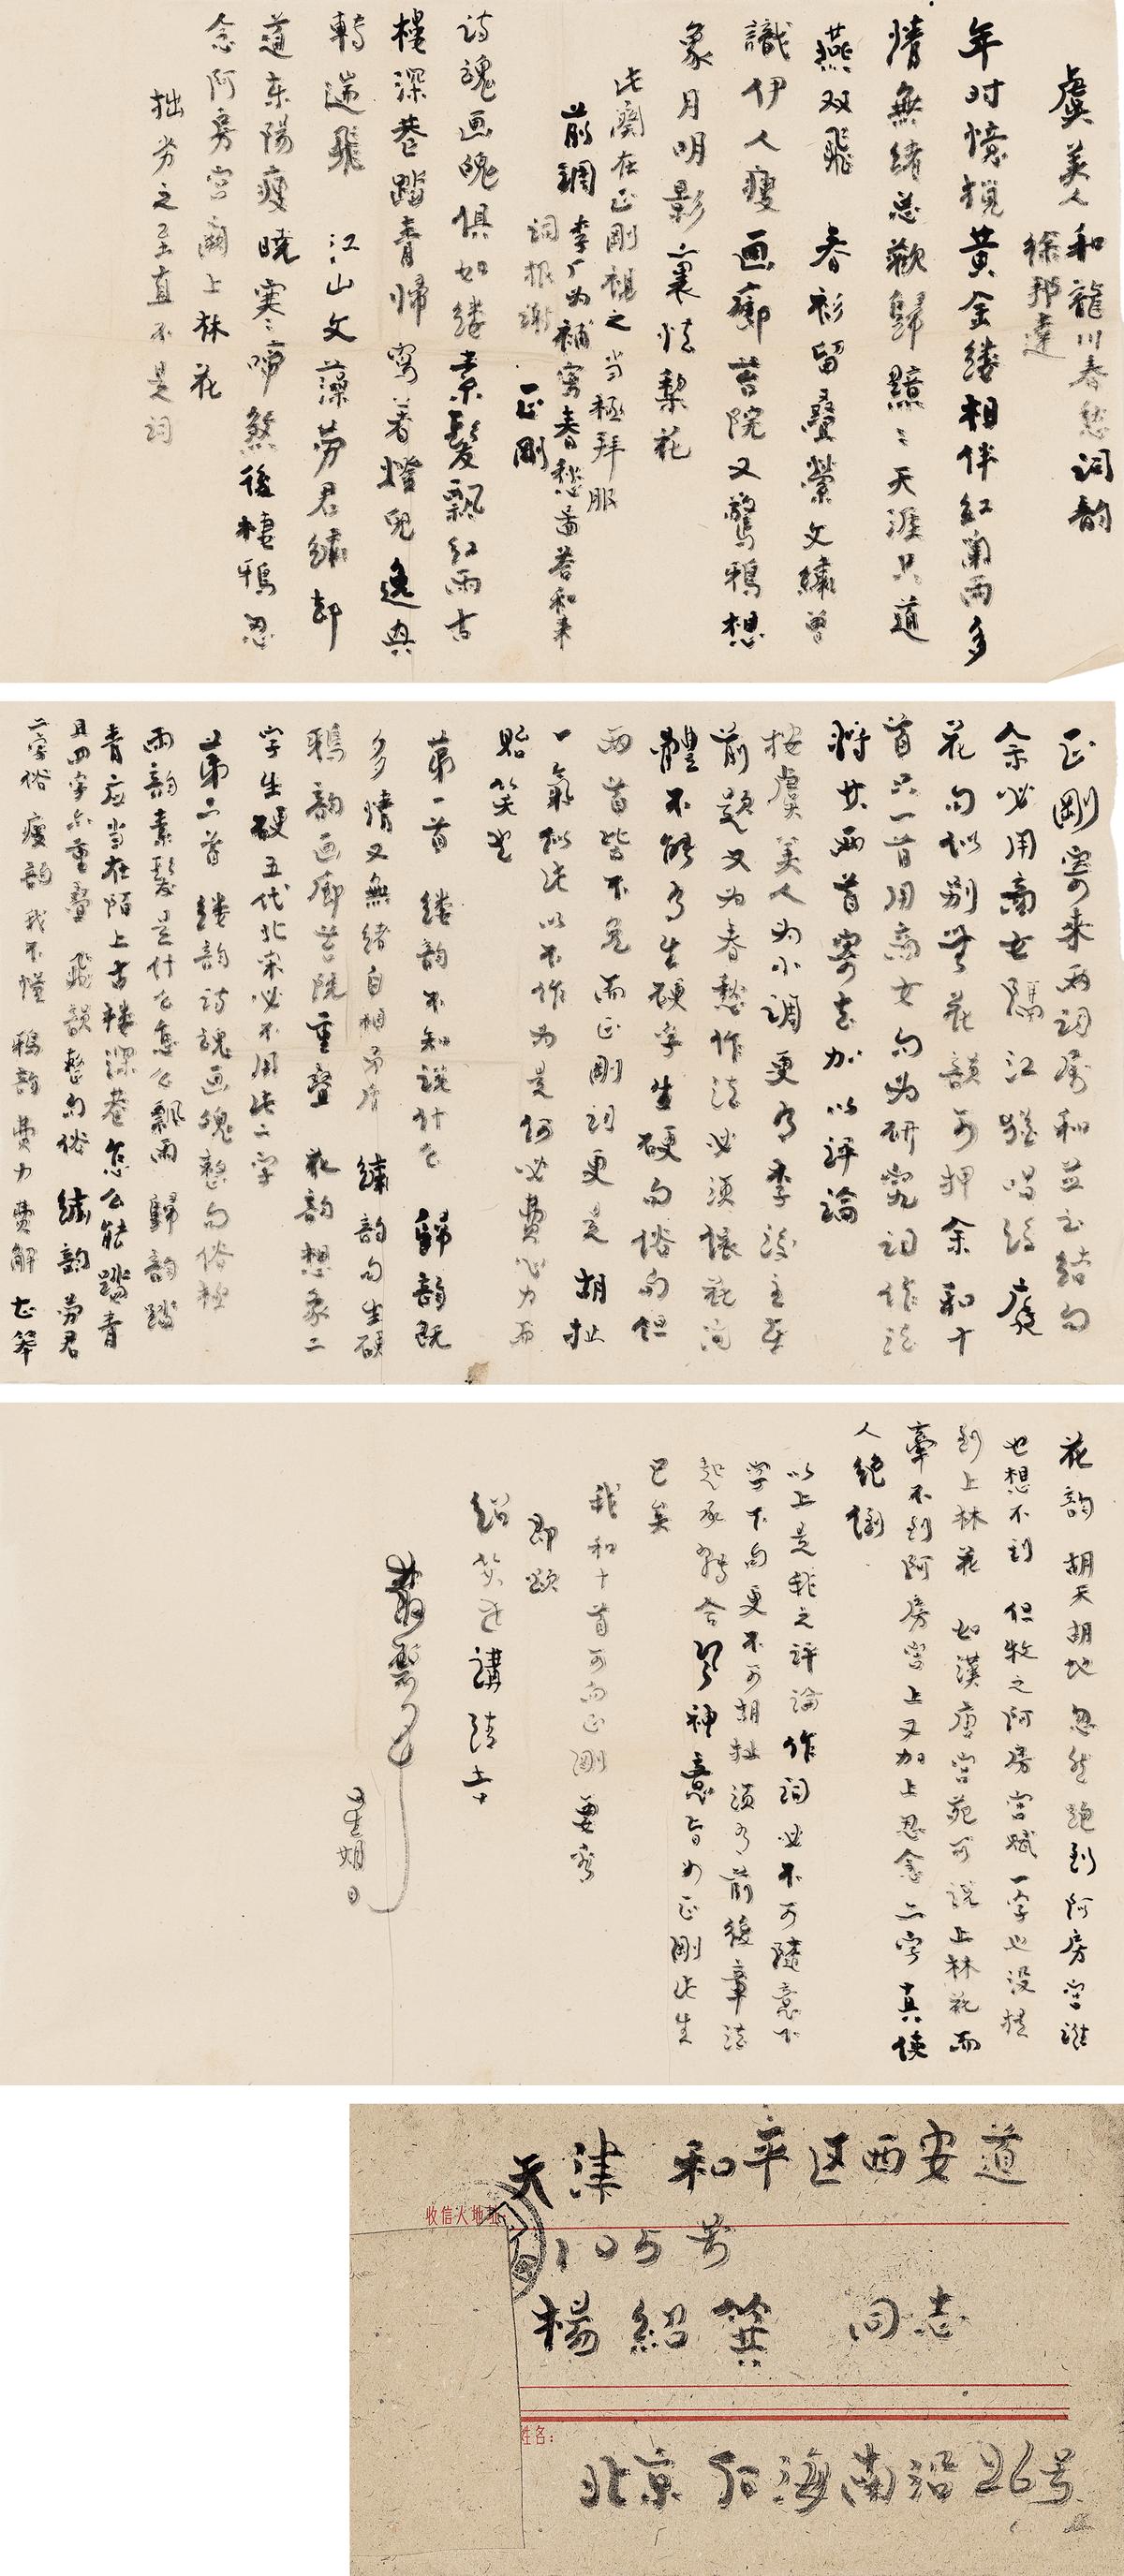 虞美人 和龍川春愁詞韵
徐邦達
年时憶挽黄金缕相伴红蘭雨多
情無緒总歡歸黯〻天涯只道
燕双飛 春衫留疊縈文繡曾
識伊人瘦画廊苔院又驚鴉想
象月明影裏怯梨花
此闋在正剛視之当極拜服
前調 李广为補寫春愁啚荅和来
詞报謝 正剛
詩魂画魄俱如缕素髮飄红雨古
樓深巷踏青归寫着燈兒逸興
轉遄飛 江山文藻勞君繡却
道东陽瘦曉寒〻啼煞後棲鴉忍
念阿房宫闕上林花
拙劣之至直不是詞
正剛寄来两詞属和並云結句
余必用商女隔江猶唱後庭
花句似别無花韻可押余和十
首只一首用商女句为研究詞作法
將其两首寄去加以評論
按虞美人为小調更有李後主在
前題又为春愁作法必須懷花間
體不能有生硬字生硬句俗句但
两首皆不免而正剛詞更是胡扯
一氣似此以不作为是何必費心力而
貽笑也
第一首 缕韵不知说什么 歸韵既
多情又無緒自相矛盾 繡韵句生硬
鴉韵画廊苔院重疊 花韵想象二
字生硬五代北宋必不用此二字
第二首 缕韵詩魂画魄整句俗極
雨韵素髮是什么怎么飄雨 歸韵踏
青应当在陌上古樓深巷怎么能踏青
且四字亦重疊 飛韻整句俗 繡韵勞君
二字俗 瘦韵我不懂 鴉韵費力費解 忒笨
花韵 胡天胡地忽然跑到阿房宫誰
也想不到 但牧之阿房宫赋一字也没提
到上林花 如漢唐宫苑可说上林花而
牽不到阿房宫上又加上忍念二字真使
人絶倒
以上是我之評論作詞必不可隨意下
字下句更不可胡扯須有前後章法
起承轉合 神意旨如正剛此生
已矣
我和十首可向正剛要看
即頌
紹箕世講清吉
叢碧
星期日
天津 和平区西安道
收信人地址:
105号
楊紹箕 同志
姓名:
北京 后海南沿26号